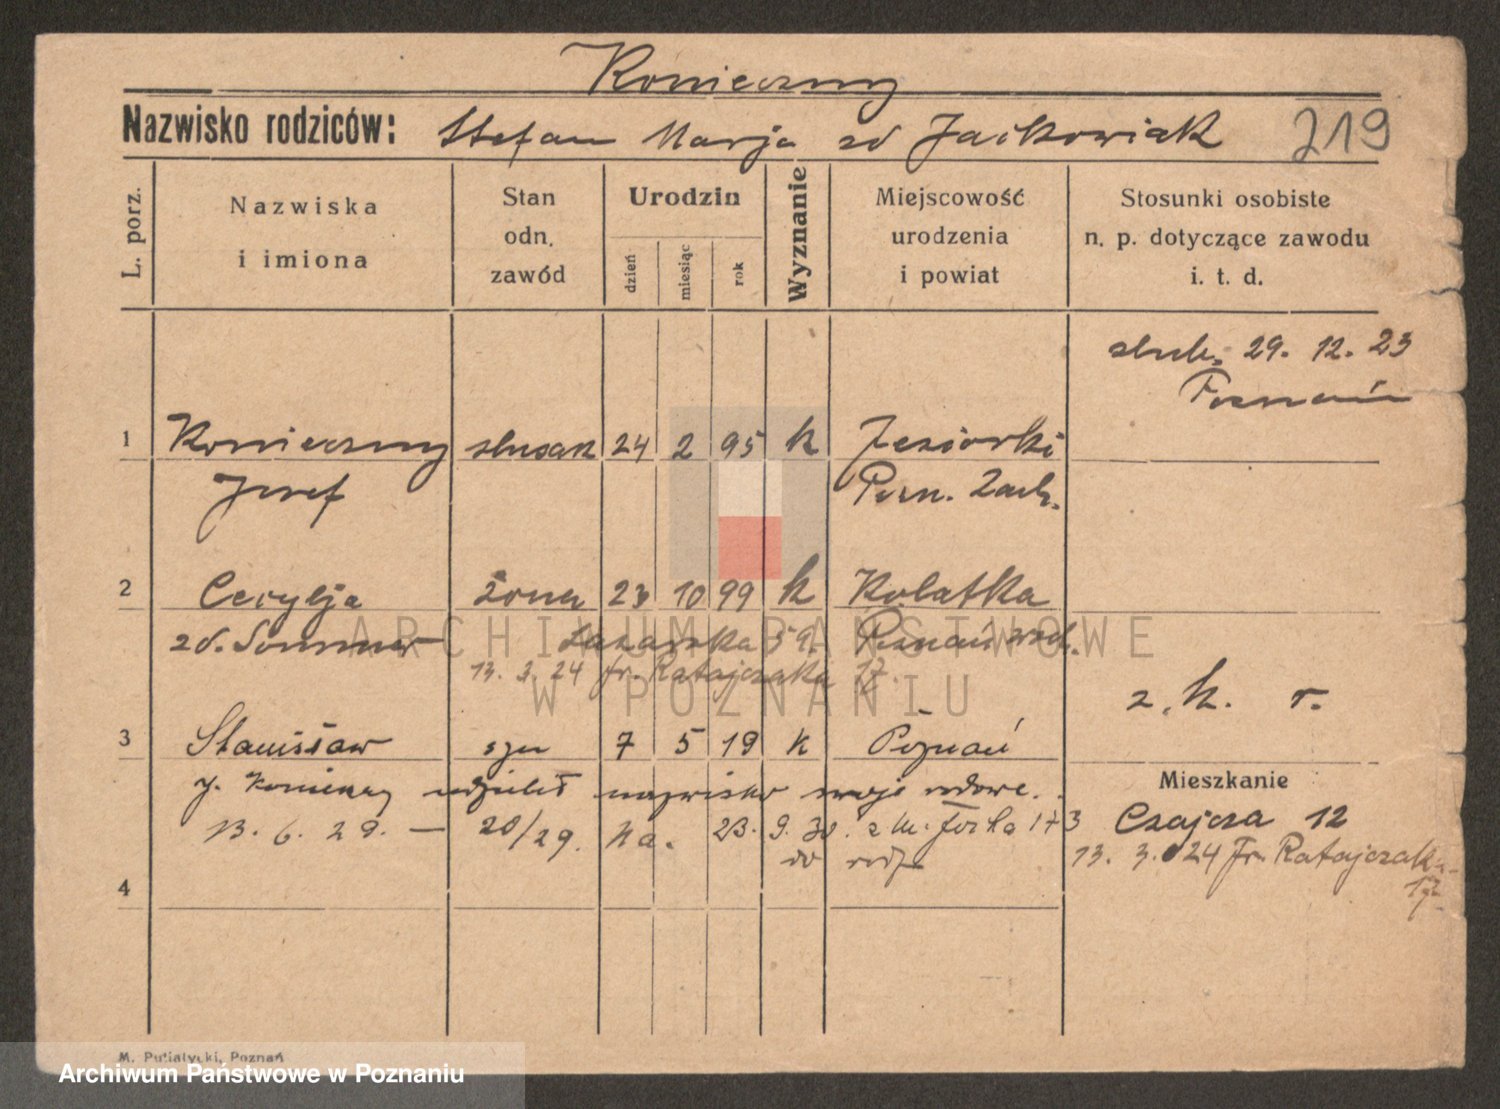 Konieczny
Nazwisko rodziców: Stefan Marja zd Jaśkowiak 219
L. porz.
Nazwiska i imiona
Stan odn. zawód
Urodzin
dzień miesiąc rok
Wyznanie
Miejscowość urodzenia i powiat
Stosunki osobiste n. p. dotyczące zawodu i. t. d.
ślub. 29. 12. 23
Poznań
1 Konieczny ślusarz 24 2 95 k Jeziorki
Józef Pozn. Zach.
2 Cecylja żona 23 10 99 k Kołatka
zd. Sommer Łazarska 59. Poznań wsch.
13. 3. 24 Fr. Ratajczaka 17
z. k. r.
3 Stanisław syn 7 5 19 k Poznań
J. Konieczny udzielił nazwisko swoje rodowe.
Mieszkanie
13. 6. 29. — 20/29. 23. 9. 30. 173 Czajcza 12
do
13. 3. 24 Fr. Ratajczaka
17
4
M. Putiatycki, Poznań
ARCHIWUM PAŃSTWOWE
W POZNANIU
Archiwum Państwowe w Poznaniu